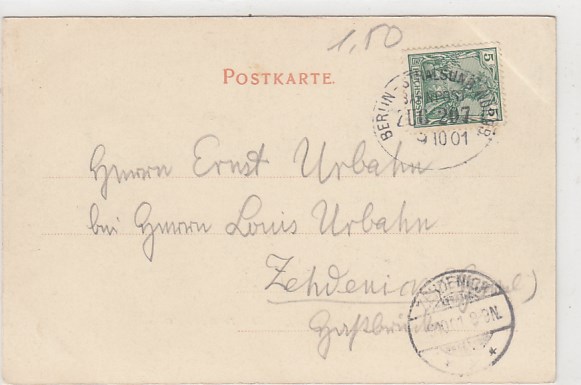 1,50
POSTKARTE.
5
BERLIN - STRALSUND
BAHNPOST
ZUG 207
9 10 01
Herrn Ernst Urbahn
bei Herrn Louis Urbahn
Zehdenick
ZEHDENICK
8-9N.